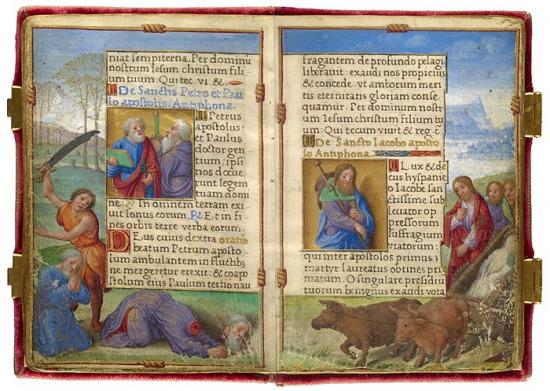 niat sempiterna. Per dominu
nostrum Iesum christum fili
um tuum. Qui tec vi &
De Sanctis Petro et Pau
lo apostolis. Antiphona.
Petrus
apostolus:
et Paulus
doctor gen
tium: ipsi
nos docue
runt legem
tuam domi
ne. In omnem terram exi
vit sonus eorum. Et in fi
nes orbis terre verba eorum.
Deus cuius dextra oratio
beatum Petrum aposto
lum ambulantem in fluctib
ne mergeretur erexit: & coapo
stolum eius Paulum tertio nau
fragantem de profundo pelagi
liberavit: exaudi nos propicius
& concede vt amborum meri
tis eternitatis gloriam conse
quamur. Per dominum nost
rum Iesum christum filium tu
um. Qui tecum vivit & reg. &
De Sancto Iacobo aposto
lo Antiphona.
Lux & de
cus hyspanie
Iacobe san
ctissime,
subleuator op
pressorum
suffragium
viatorum:
qui inter apostolos primus
martyr laureatus obtines pri
matum. O singulare presidiu
tuorum benignus exaudi vota